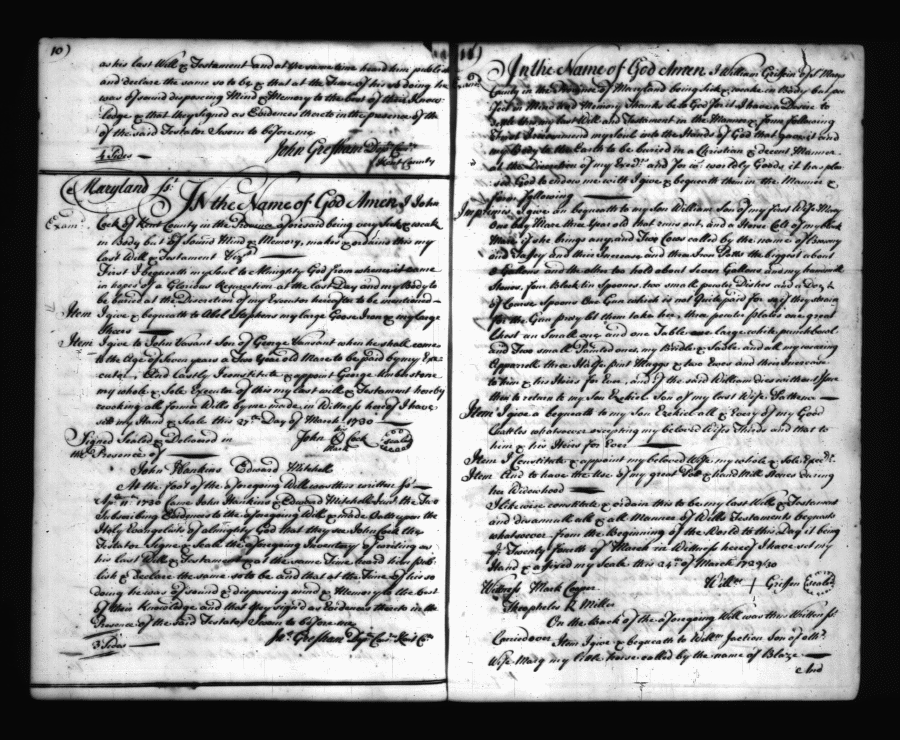 10)
as his last Will & Testament and at the same time heard him publish
and declare the same so to be & that at the Time of his so doing he
was of sound disposing Mind & Memory to the best of their Know=
ledge & that they signed as Evidences thereto in the presence of the
of the said Testator Sworn to before me
4 Sides
John Gresham Depy Comry
Kent County
Maryland Ss:
IN the Name of God Amen I John
Exam:
Cock of Kent County in the Province aforesaid being very Sick & weak
in Body but of Sound Mind & Memory, makes & ordains this my
last Will & Testament Vizt
First I bequeath my Soul to Almighty God from whence it came
in hopes of a Glorious Resurrection at the last Day and my Body to
be buried at the Discretion of my Executor hereafter to be mentioned
Item I give & bequeath to Abel Stephens my large Goose Iron & my large
Sheers
Item I give to John Vansant Son of George Vansant when he shall come
to the Age of Seven years a Two year old Mare to be paid by my Exe
cutor, And Lastly I constitute & appoint George
my whole & Sole Executor of this my last will & Testament hereby
revoking all former Wills by me made, in Wittness hereof I have
sett my Hand & Seale this 27th Day of March 1730
Signed Sealed & Delivered in
the Presence of
John Cock
mark
Seale
John Hankins Edward Mitchell
At the foot of the aforegoing Will was thus written Ss
1730 Came John Hawkins & Edward Mitchell the Two
Subscribing Evidences to the aforegoing Will & made Oath upon the
Holy Evangelists of almighty God that they see John Cock the
Testator Signe & Seale the aforegoing Inventory of writing as
his last Will & Testament & at the same Time heard him pub
lish & Declare the same so to be and that at the Time of his so
doing he was of sound & disposing mind & Memory to the best
of their Knowledge and that they signed as Evidences thereto in the
Presence of the said Testator Sworn to before me
3 Sides
Jno Gresham Depy Comry Kent Co
11)
In the Name of God Amen I William Griffin of St Marys
County in the Province of Maryland being Sick & weake in Body but per
fect in Mind and Memory Thanks be to God for it I have a Desire to
my last Will and Testament in the Manner & form following
First I recommend my Soul into the Hands of God that gave it and
my Body to the Earth to be buried in a Christian & decent Manner
at the Direction of my Execrs and for my worldly Goods it has plea
sed God to endow me with I give & bequeath them in the Manner &
form following
Imprimis I give an bequeath to my Son William Son of my first Wife Mary
One bay Mare three Year old that runs out, and a Horse Colt of my black
Mare if she brings any and Two Cows called by the name of Browny
and Taffey and their Increase and three Iron Potts the biggest about
Gallons and the other to hold about Seven Gallons and my handmill
Stones, four Block tin Spoones, two small pewter Dishes and a Dozn
of Course Spoons One Gun which is not Quite paid for & if they strain
for the Gun pray let them take her, three pewter plates one great
Chest an Small one and one Table one large white punchbowl
and Two small Painted ones, my Bridle & Sadle and all my wearing
Apparrell three Half pint Muggs & two Ewes and their Increase
to him & his Heirs for Ever, and if the said William dies without Issue
then to return to my Son Ezekiel Son of my last Wife
Item I give a bequeath to my Son Ezekiel all & Every of my Good
Cattles whatsoever excepting my beloved Wifes Thirds and that to
him & his Heirs for Ever
Item I Constitute & appoint my beloved Wife my whole & Sole Execrx
Item And to have the Use of my great Pot & hand Mill Stones during
her Widowhood
I Likewise constitute & ordain this to be my last Will & Testament
and disannull all & all Manner of Wills Testaments bequests
whatsoever from the Beginning of the World to this Day it being
ye Twenty fourth of March in Wittness hereof I have set my
Hand & affixed my Seale this 24th of March 1729/30
Wittness Mark Cooper
Theophelos R Miller
Willm + Griffen Seale
On the Back of the aforegoing Will was thus Written Ss
Item I give & bequeath to Willm Jackson Son of
Wife Mary my little horse called by the name of Blaze
And